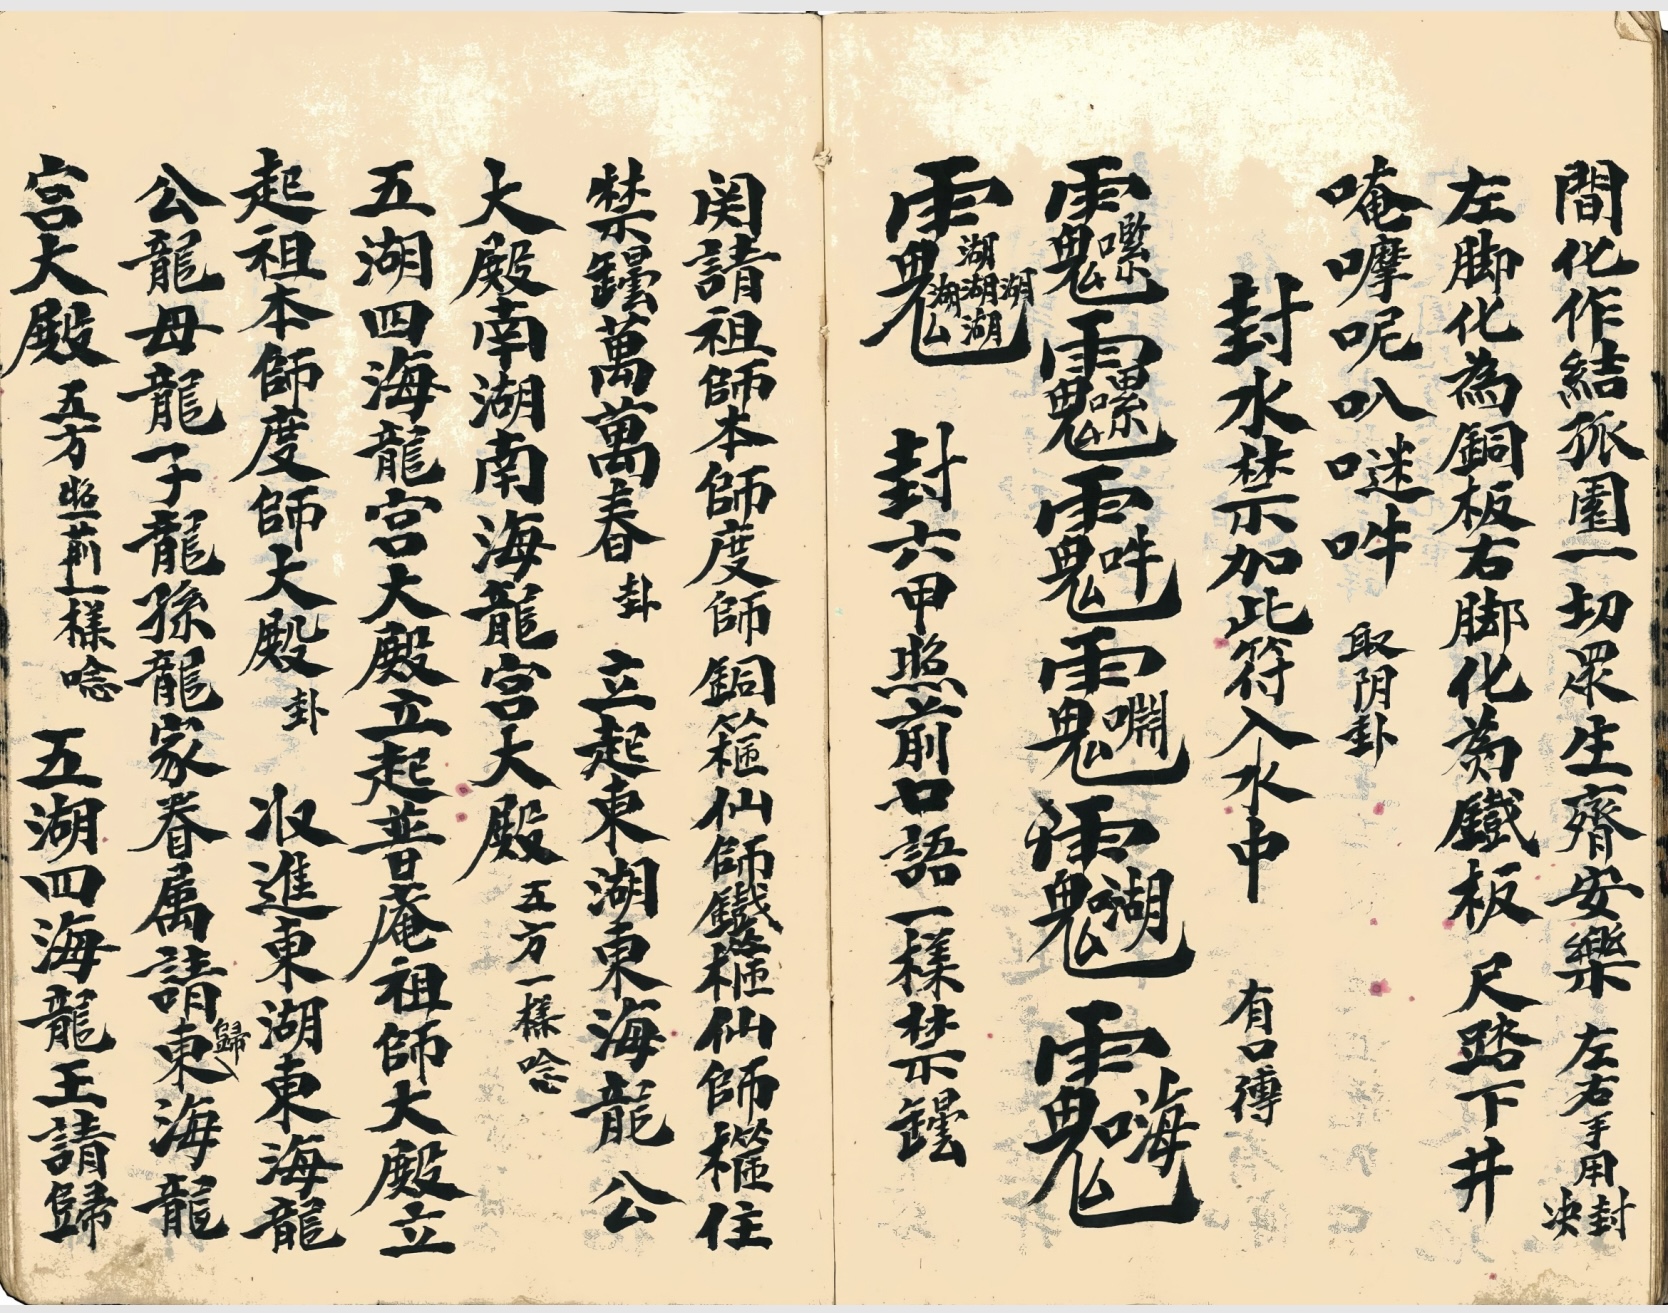 間化作結孤園一切眾生齊安樂 左右手用封决
左脚化為銅板右脚化為鐵板 尺踏下井
唵嚤呢叺𠰷吽 取阴卦
封水禁示加此符入水中 有口傳
封六甲照前口語一樣禁示罎
関請祖師本師度師銅箍仙師鐵箍仙師箍住
禁罎萬萬春 卦 立起東湖東海龍公
大殿南湖南海龍宮大殿 五方一樣唸
五湖四海龍宮大殿立起普庵祖師大殿立
起祖本師度師大殿 卦 收進東湖東海龍
公龍母龍子龍孫龍家眷属請歸東海龍
宮大殿 五方照前一樣唸 五湖四海龍王請歸